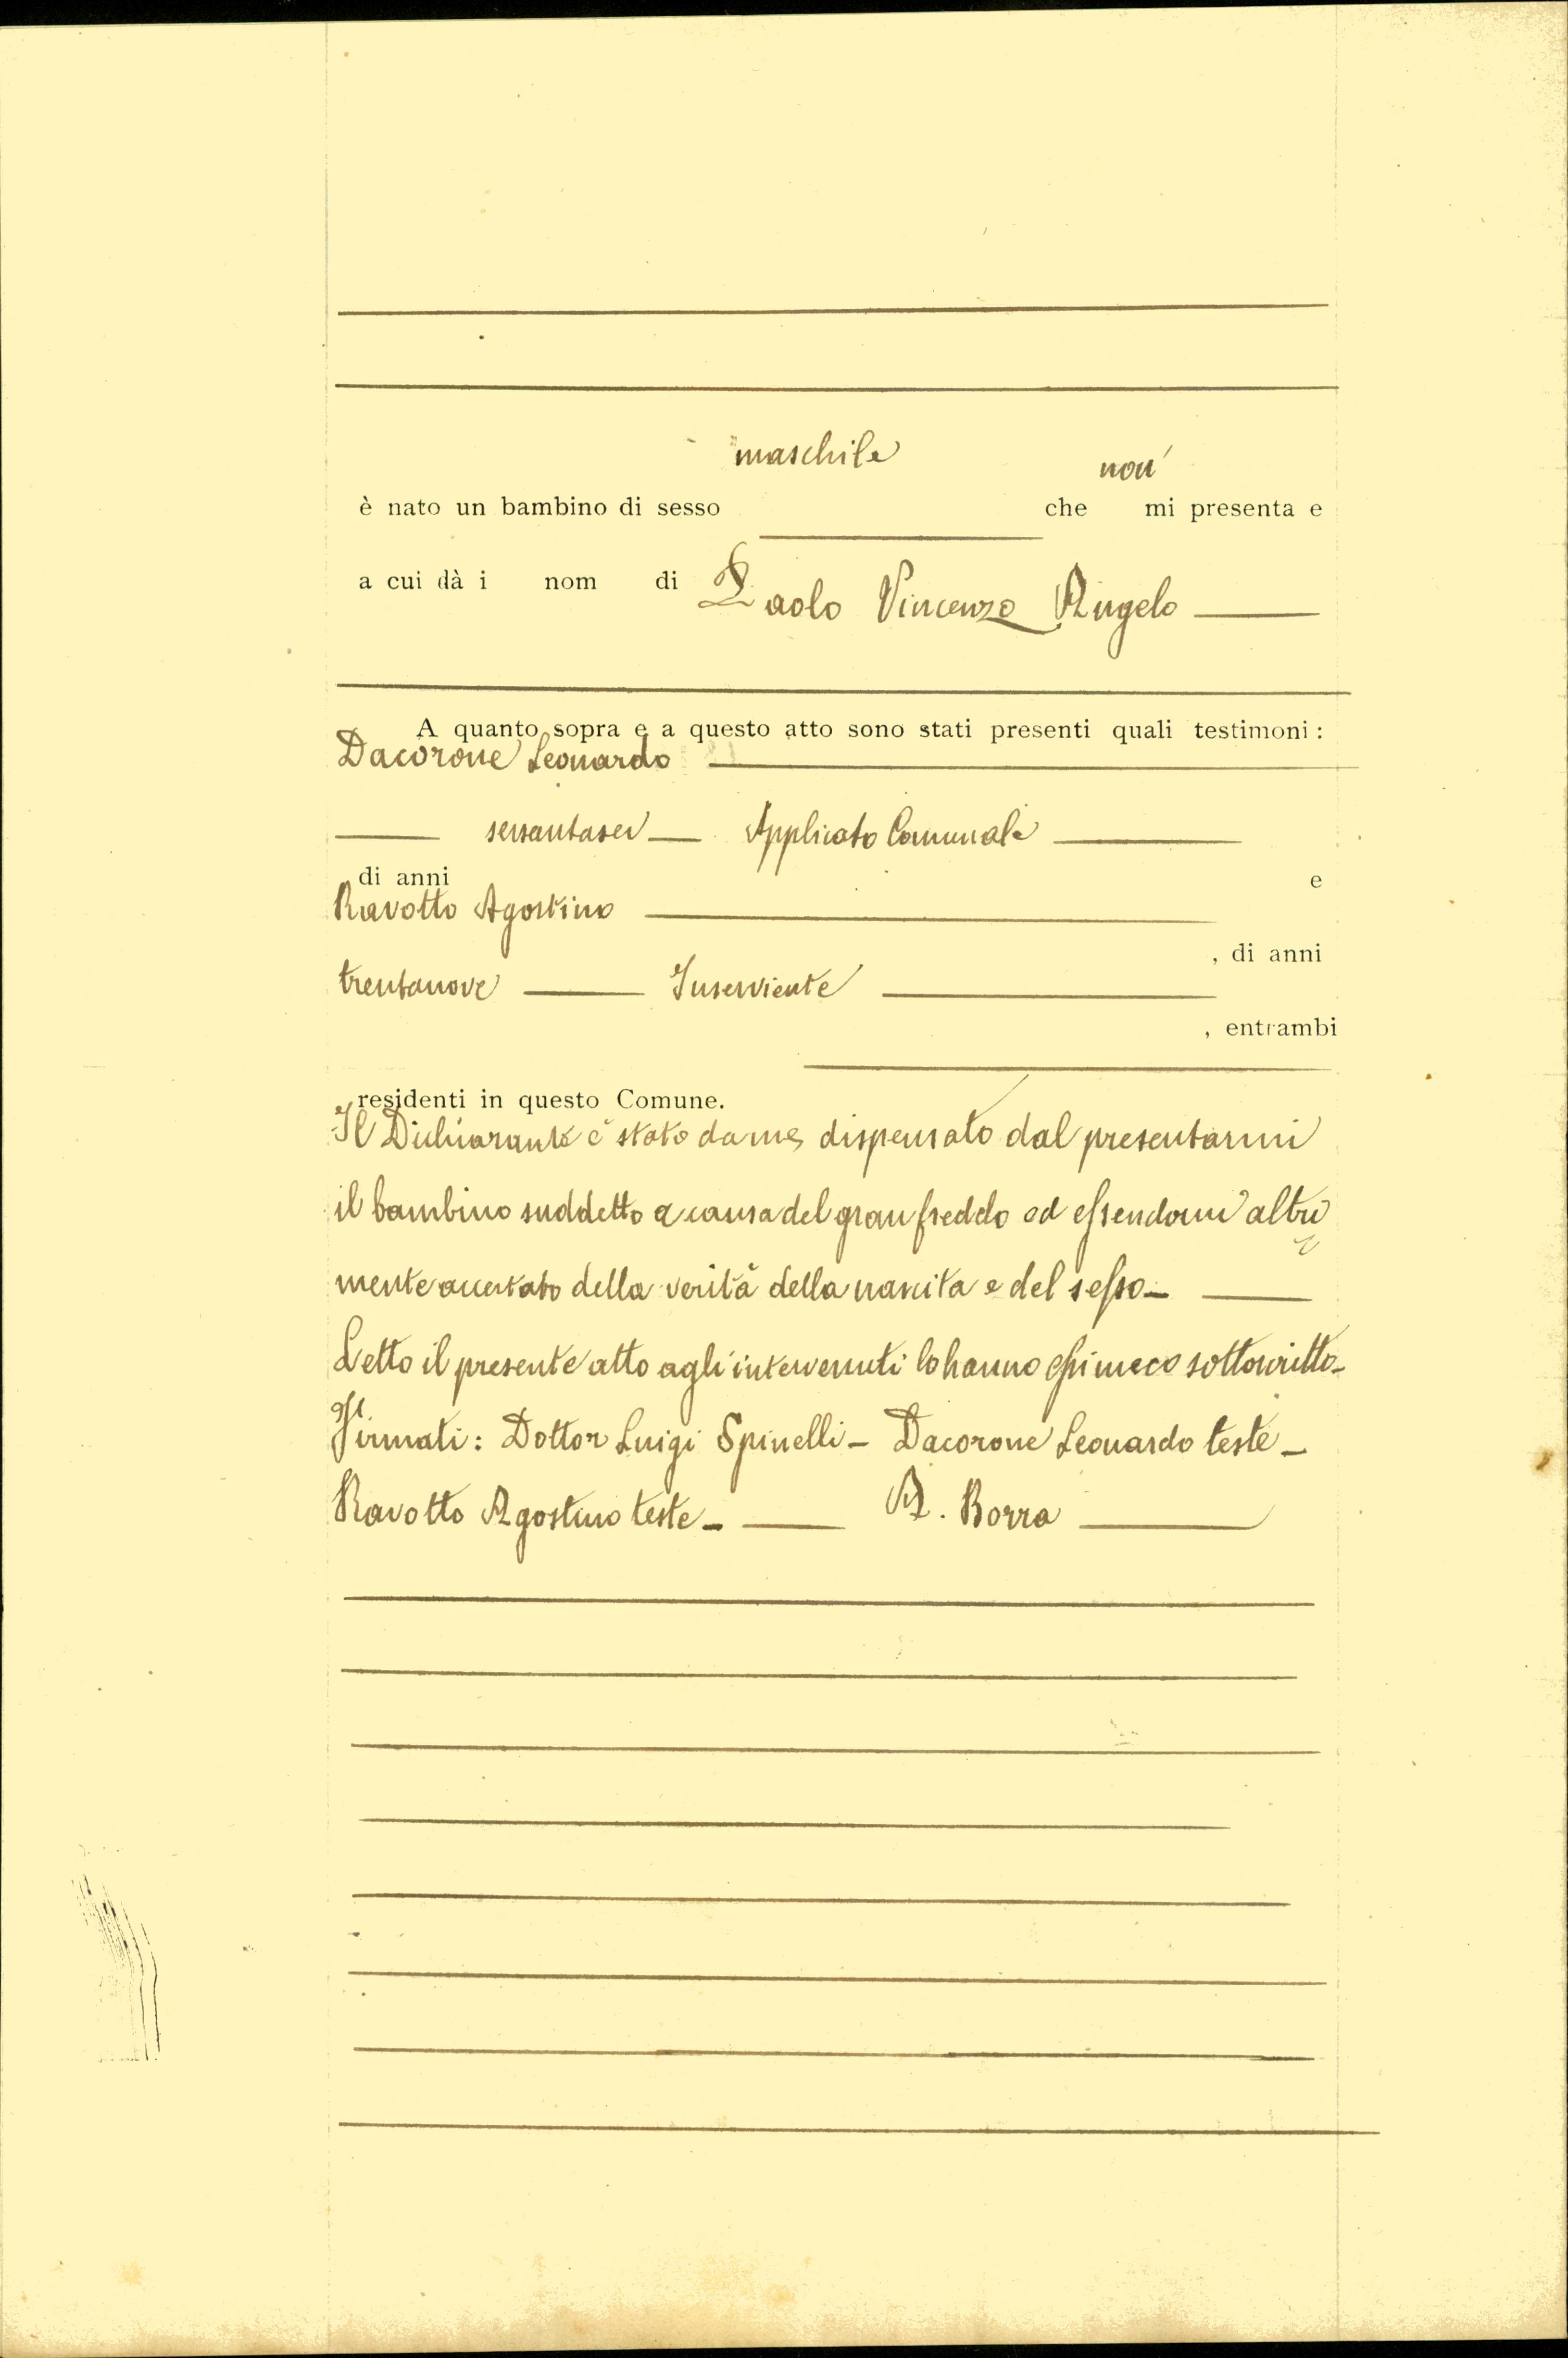 maschile non
è nato un bambino di sesso che mi presenta e
a cui dà i nom di Paolo Vincenzo Angelo
A quanto sopra e a questo atto sono stati presenti quali testimoni :
Dacorone Leonardo
sessantasei Applicato Comunale
di anni e
Ravotto Agostino
, di anni
trentanove Inserviente
, entrambi
residenti in questo Comune.
Il Dichiarante è stato da me dispensato dal presentarmi
il bambino suddetto a causa del gran freddo ed essendomi altri
mente accertato della verità della nascita e del sesso
Letto il presente atto agli intervenuti lo hanno essi meco sottoscritto
Firmati: Dottor Luigi Spinelli - Dacorone Leonardo teste -
Ravotto Agostino teste - A. Borra